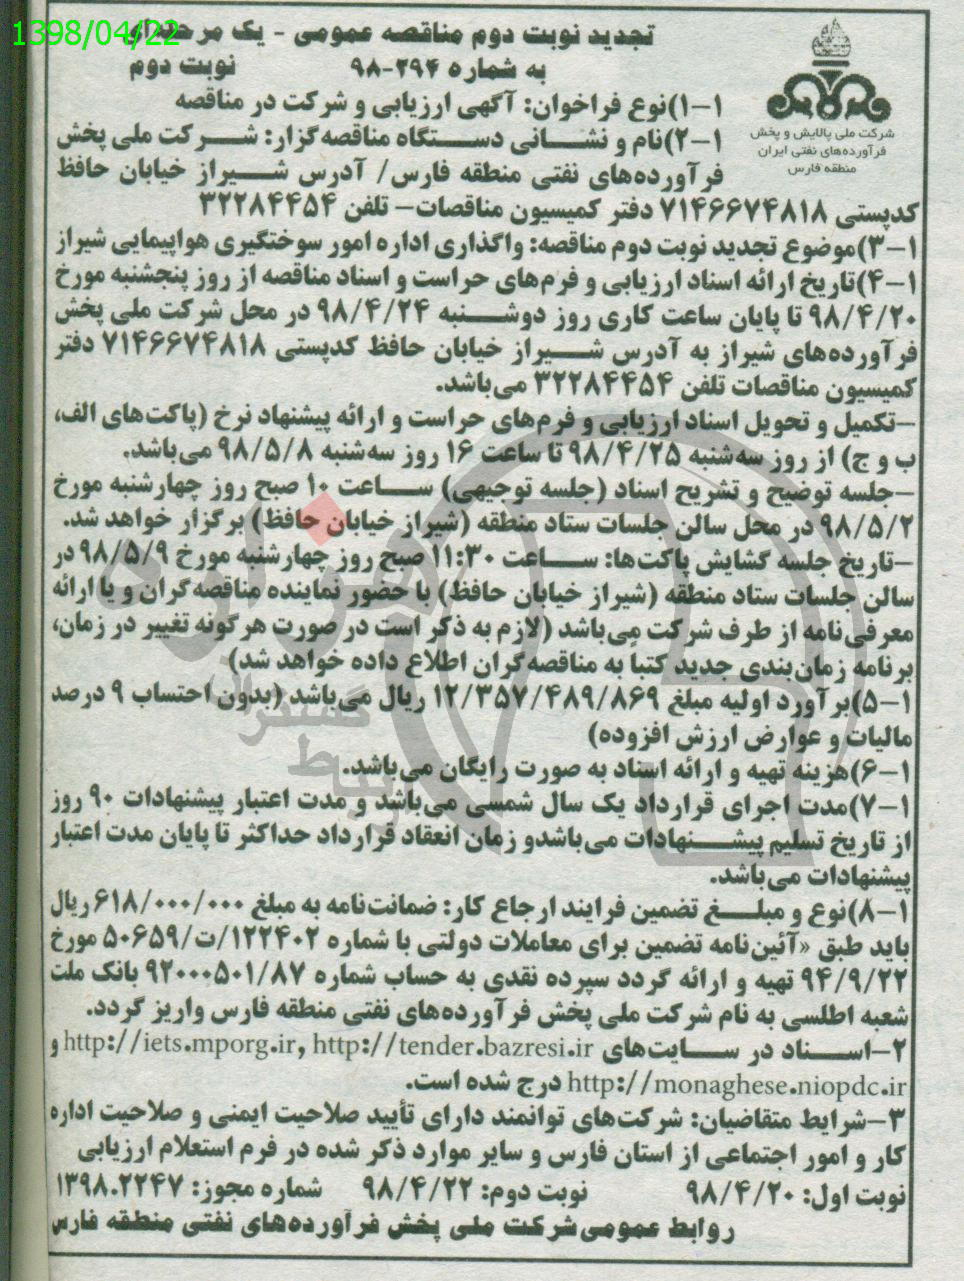 1398/04/22
تجدید نوبت دوم مناقصه عمومی - یک مرحله‌ای
به شماره ۲۹۴-۹۸ نوبت دوم
شرکت ملی پالایش و پخش
فرآورده‌های نفتی ایران
منطقه فارس
۱-۱)نوع فراخوان: آگهی ارزیابی و شرکت در مناقصه
۱-۲)نام و نشانی دستگاه مناقصه‌گزار: شرکت ملی پخش
فرآورده‌های نفتی منطقه فارس/ آدرس شیراز خیابان حافظ
کدپستی ۷۱۴۶۶۷۴۸۱۸ دفتر کمیسیون مناقصات- تلفن ۳۲۲۸۴۴۵۴
۱-۳)موضوع تجدید نوبت دوم مناقصه: واگذاری اداره امور سوختگیری هواپیمایی شیراز
۱-۴)تاریخ ارائه اسناد ارزیابی و فرم‌های حراست و اسناد مناقصه از روز پنجشنبه مورخ
۹۸/۴/۲۰ تا پایان ساعت کاری روز دوشنبه ۹۸/۴/۲۴ در محل شرکت ملی پخش
فرآورده‌های شیراز به آدرس شیراز خیابان حافظ کدپستی ۷۱۴۶۶۷۴۸۱۸ دفتر
کمیسیون مناقصات تلفن ۳۲۲۸۴۴۵۴ می‌باشد.
-تکمیل و تحویل اسناد ارزیابی و فرم‌های حراست و ارائه پیشنهاد نرخ (پاکت‌های الف،
ب و ج) از روز سه‌شنبه ۹۸/۴/۲۵ تا ساعت ۱۶ روز سه‌شنبه ۹۸/۵/۸ می‌باشد.
-جلسه توضیح و تشریح اسناد (جلسه توجیهی) ساعت ۱۰ صبح روز چهارشنبه مورخ
۹۸/۵/۲ در محل سالن جلسات ستاد منطقه (شیراز خیابان حافظ) برگزار خواهد شد.
-تاریخ جلسه گشایش پاکت‌ها: ساعت ۱۱:۳۰ صبح روز چهارشنبه مورخ ۹۸/۵/۹ در
سالن جلسات ستاد منطقه (شیراز خیابان حافظ) با حضور نماینده مناقصه‌گران و یا ارائه
معرفی‌نامه از طرف شرکت می‌باشد (لازم به ذکر است در صورت هرگونه تغییر در زمان،
برنامه زمان‌بندی جدید کتباً به مناقصه‌گران اطلاع داده خواهد شد)
۱-۵)برآورد اولیه مبلغ ۱۲/۳۵۷/۴۸۹/۸۶۹ ریال می‌باشد (بدون احتساب ۹ درصد
مالیات و عوارض ارزش افزوده)
۱-۶)هزینه تهیه و ارائه اسناد به صورت رایگان می‌باشد.
۱-۷)مدت اجرای قرارداد یک سال شمسی می‌باشد و مدت اعتبار پیشنهادات ۹۰ روز
از تاریخ تسلیم پیشنهادات می‌باشدو زمان انعقاد قرارداد حداکثر تا پایان مدت اعتبار
پیشنهادات می‌باشد.
۱-۸)نوع و مبلغ تضمین فرایند ارجاع کار: ضمانت‌نامه به مبلغ ۶۱۸/۰۰۰/۰۰۰ ریال
باید طبق «آئین‌نامه تضمین برای معاملات دولتی با شماره ۱۲۲۴۰۲/ت/۵۰۶۵۹ مورخ
۹۴/۹/۲۲ تهیه و ارائه گردد سپرده نقدی به حساب شماره ۹۲۰۰۰۵۰۱/۸۷ بانک ملت
شعبه اطلسی به نام شرکت ملی پخش فرآورده‌های نفتی منطقه فارس واریز گردد.
۲-اسناد در سایت‌های http://iets.mporg.ir, http://tender.bazresi.ir و
http://monaghese.niopdc.ir درج شده است.
۳-شرایط متقاضیان: شرکت‌های توانمند دارای تأیید صلاحیت ایمنی و صلاحیت اداره
کار و امور اجتماعی از استان فارس و سایر موارد ذکر شده در فرم استعلام ارزیابی
نوبت اول: ۹۸/۴/۲۰ نوبت دوم: ۹۸/۴/۲۲ شماره مجوز: ۱۳۹۸.۲۲۴۷
روابط عمومی شرکت ملی پخش فرآورده‌های نفتی منطقه فارس